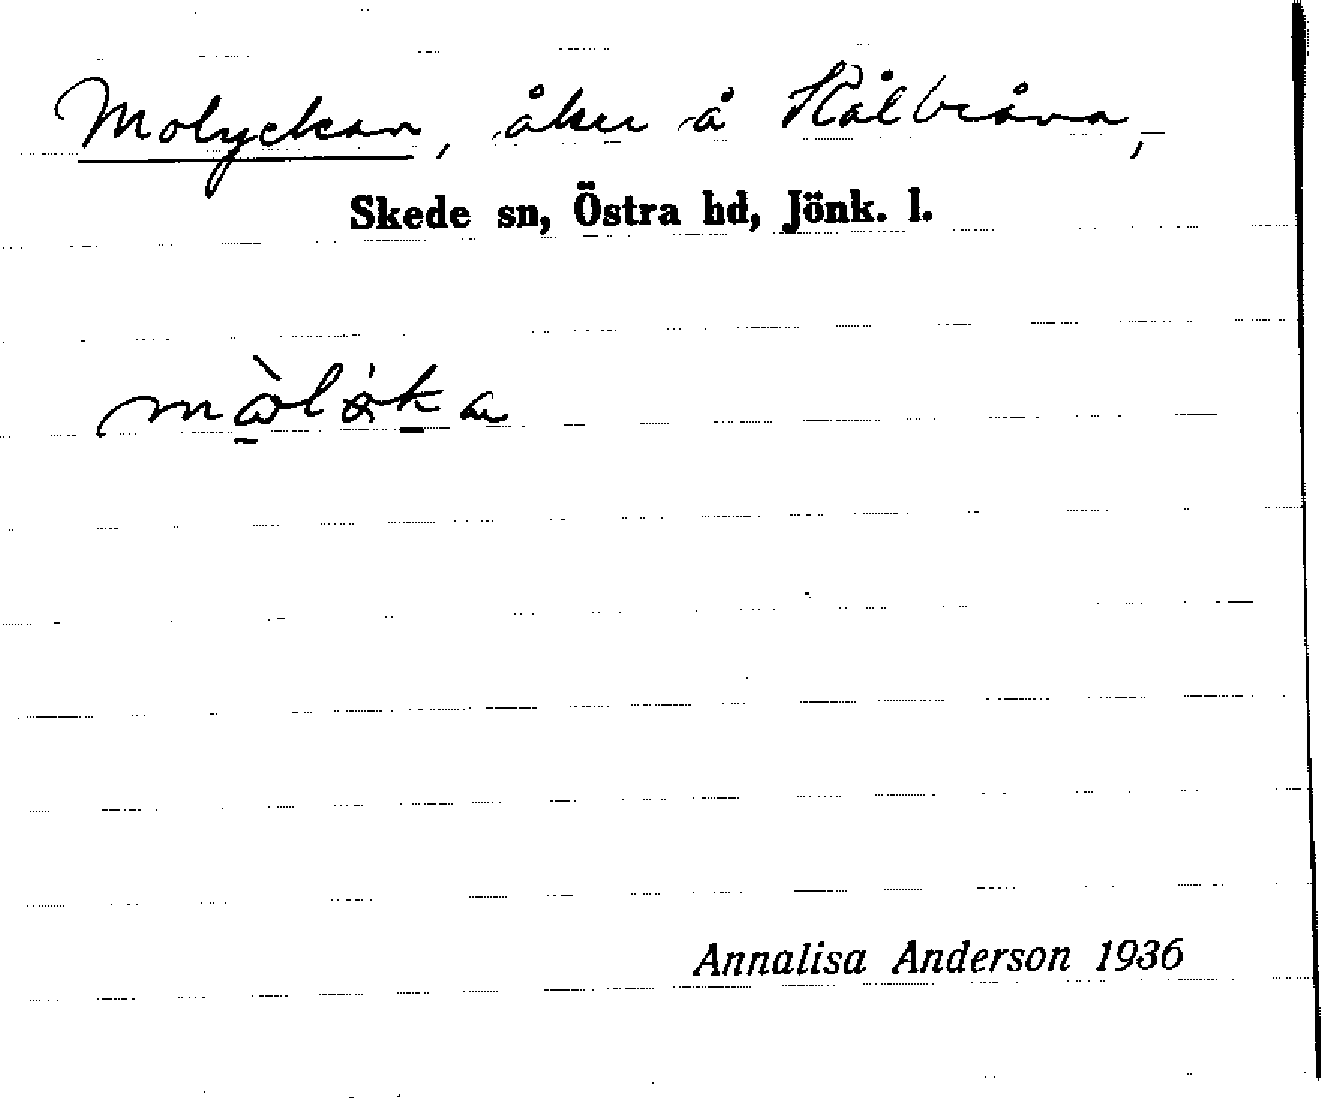 Molyckan, åker å Kålbråna,
Skede sn, Östra hd, Jönk. l.
Annalisa Anderson 1936